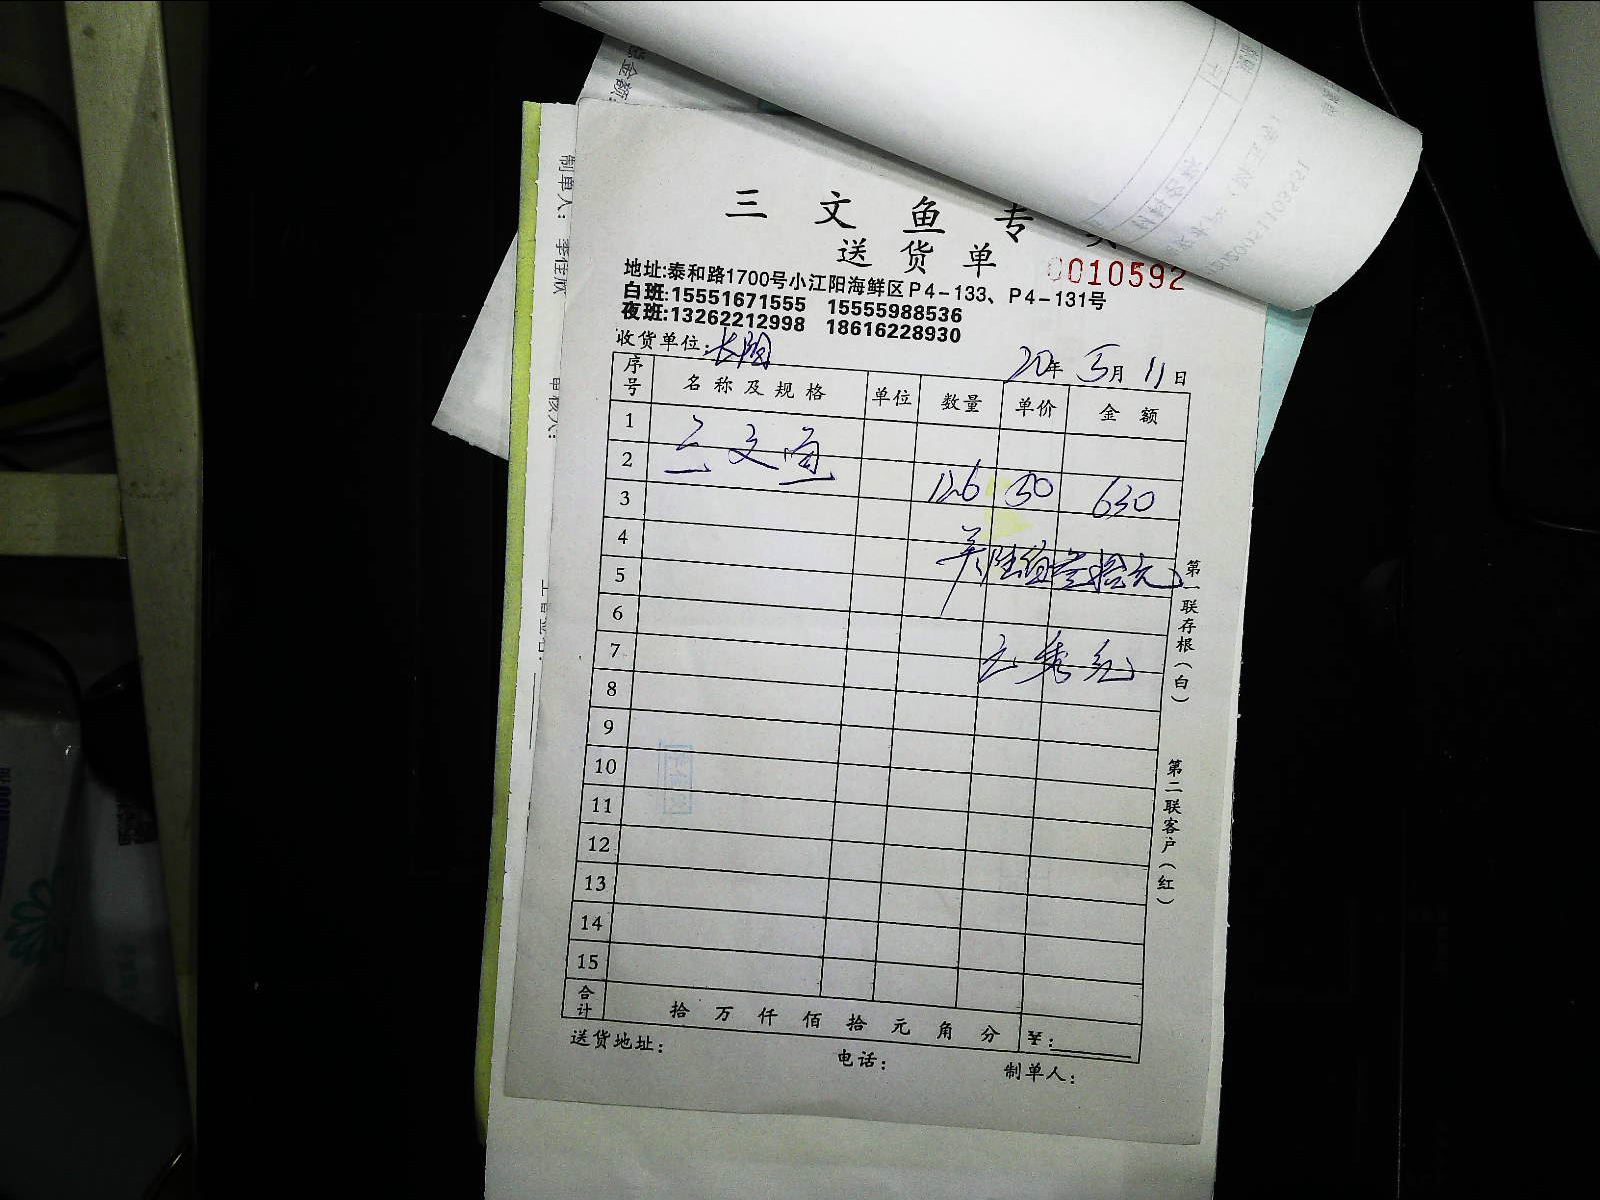 三文鱼专
送货单
0010592
地址:泰和路1700号小江阳海鲜区P4-133、P4-131号
白班:15551671555 15555988536
夜班:13262212998 18616228930
收货单位:
20年 5月 11日
序号 名称及规格 单位 数量 单价 金额
1
三文鱼
2
126 30 630
3
4
共陆佰叁拾元
5
6
7
8
9
10
11
12
13
14
15
合计 拾 万 仟 佰 拾 元 角 分 ¥:
送货地址: 电话: 制单人:
第一联存根(白)
第二联客户(红)
制单人:
审核人:
金额: